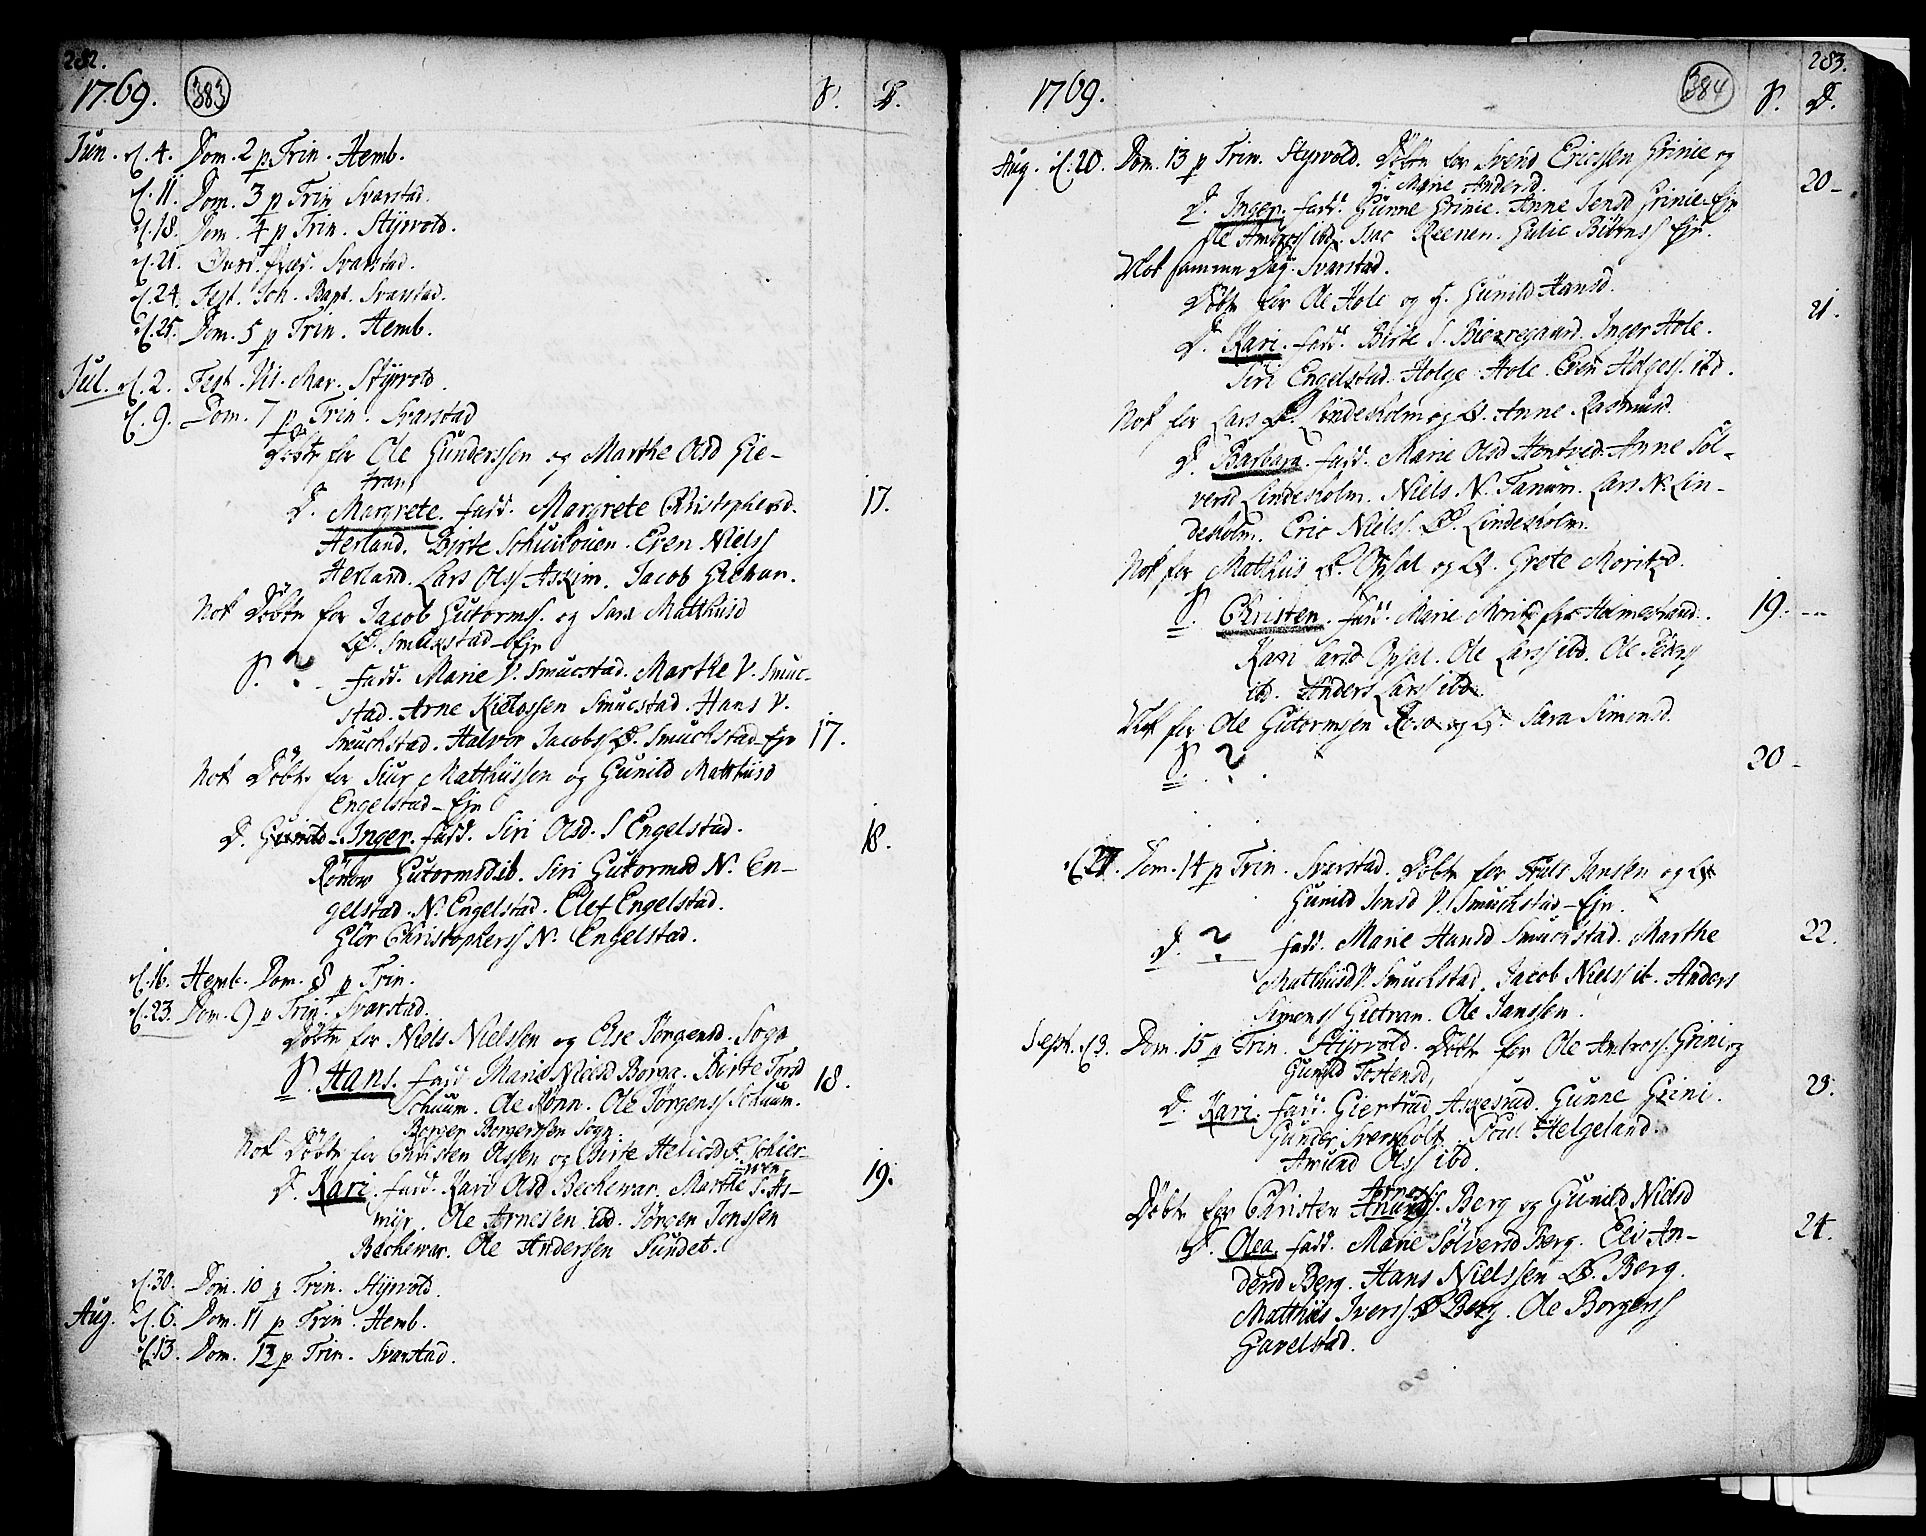 282.
1769. 383 S. D.
Jun. d. 4. Dom. 2 p Trin. Hemb.
d. 11. Dom. 3 p Trin Svarstad.
d. 18. Dom. 4 p Trin. Styrvold.
d. 21. Svarstad.
d. 24. Fest. Joh. Bapt. Svarstad.
d. 25. Dom. 5 p Trin. Hemb.
Jul. d. 2. Fest. Vis. Mar. Styrvold.
d. 9. Dom. 7 p Trin. Svarstad
Döbte for Ole Gunderssen og Marthe Olsd Gie-
tran
D. Margrete. fadd. Margrete Christophersd. 17.
Herland. Birte Even Nielss
Herland. Lars Olss Askim. Jacob Gietran.
Nok Döbte for Jacob Gutormss. og Sara Matthisd
Smukstad-Eje
S. ? - fadd. Marie V. Smucstad. Marthe V. Smuc-
stad. Arne Smucstad. Hans V.
Smuchstad. Halvor Jacobss Ø. Smuchstad-Eje 17.
Nok Döbte for Siur Matthissen og Gunild Matthisd
Engelstad-Eje
D. Gunild-Inger. fadd. Siri Olsd. S Engelstad. 18.
Rönow Gutormsd ib. Siri Gutormsd N. En-
gelstad. N. Engelstad. Elef Engelstad.
Glör Christopherss N. Engelstad.
d. 16. Hemb. Dom. 8 p Trin.
d. 23. Dom. 9 p Trin. Svarstad.
Döbte for Niels Nielssen og Else Jörgensd. Sogn
S. Hans. fadd Marie Nielsd Borga. Birte Tordsd 18.
Schuum. Ole Rönn. Ole Jörgenss Schuum.
Borger Borgerssen Sogn.
Nok Döbte for Christen Olssen og Birte Schier-
ven
D. Kari. fadd. Kari Olsd Bechewar. Marthe S. As- 19.
myr. Ole Arnesen ibd. Jörgen Jonssen
Bechewar. Ole Anderssen Sundet.
d. 30. Dom. 10 p Trin. Styrvold.
Aug. d. 6. Dom. 11 p Trin. Hemb.
d. 13. Dom. 12 p Trin. Svarstad.
283.
1769. 384 S. D.
Aug. d. 20. Dom. 13 p Trin. Styrvold. Döbte for Svend Ericssen Grinie og
H. Marie Andersd. 20-
D. Inger. fadd. Gunne Grinie. Anne Jensd Grinie-Eje
Ole Ambross ibd. Isac Reenen. Gulic Biörnss Eje.
Nok samme Dag. Svarstad.
Döbte for Ole Hole og H. Gunild Hansd. 21.
D. Kari. fadd. Birte S. Bieregaard. Inger Hole.
Siri Engelstad. Holge Hole. Even Holgess. ibd.
Nok for Lars Ø. Lindesholm og H. Anne Rasmusd.
D. Barbara. fadd. Marie Olsd Anne Söl-
versd Lindesholm. Niels N. Tanum. Lars N. Lin-
desholm. Eric Nielss. Ø. Lindesholm.
Nok for Matthis Ø. Opsal og H. Grete Moritzd.
S. Christen. fadd. Marie Moritzd fra Holmestrand. 19. --
Kari Larsd Opsal. Ole Larss ibd. Ole Peders
ibd. Anders Larss ibd.
Nok for Ole Gutormsen og H. Sara Simensd.
S. ? . 20-
d. 27. Dom. 14 p Trin. Svarstad. Döbte for Truls Jansen og H
Gunild Jensd V. Smuchstad-Eje.
D. ? fadd. Marie Hansd Smuchstad. Marthe 22.
Matthisd V. Smuchstad. Jacob Nielss ib. Anders
Simenss Gietran. Ole Janssen.
Sept. d 3. Dom. 15 p Trin. Styrvold. Döbte for Ole Ambross. Grini og
Gunild Tostensd,
D. Kari. fadd. Giertrud Gunne Grini. 23.
Gunder Poul Helgeland
Amund Olss ibd.
Arness.
Döbte for Christen Amunds. Berg og Gunild Nielsd
D. Olea. fadd. Marie Sölversd Berg. Eli An- 24.
dersd Berg. Hans Nielssen Ø. Berg.
Matthis Iverss Ø Berg. Ole Borgerss
Gavelstad.